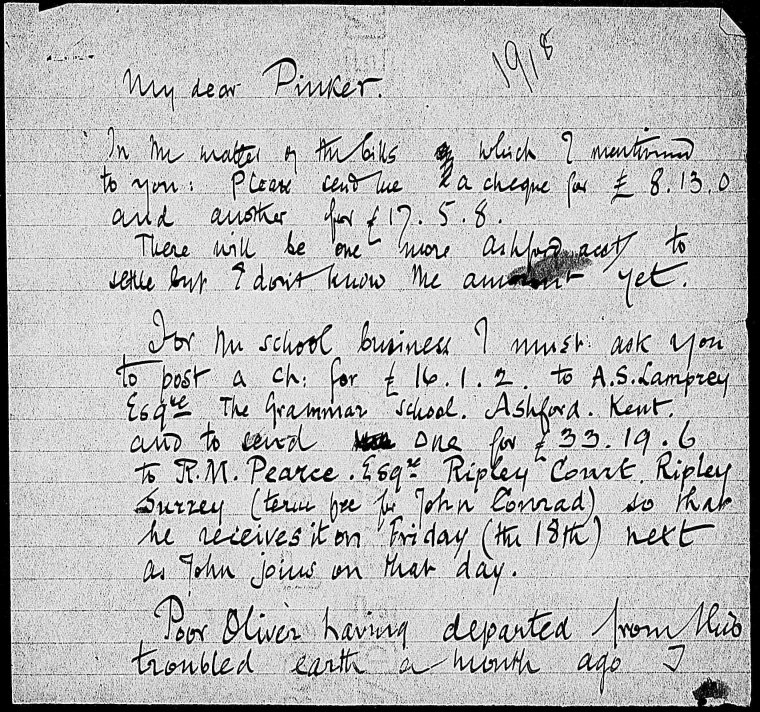 1918
My dear Pinker.
In the matter of the bills which I mentioned
to you: Please send me a cheque for £ 8.13.0
and another for £17.5.8.
There will be one more Ashford acct/ to
settle but I don't know the amount yet.
For the school business I must ask you
to post a ch: for £ 16.1.2. to A.S. Lamprey
Esqre The Grammar School. Ashford. Kent.
and to send one for £33.19.6
to R.M. Pearce. Esqre Ripley Court. Ripley
Surrey (term fee for John Conrad) so that
he receives it on Friday (the 18th) next
as John joins on that day.
Poor Oliver having departed from this
troubled earth a month ago I